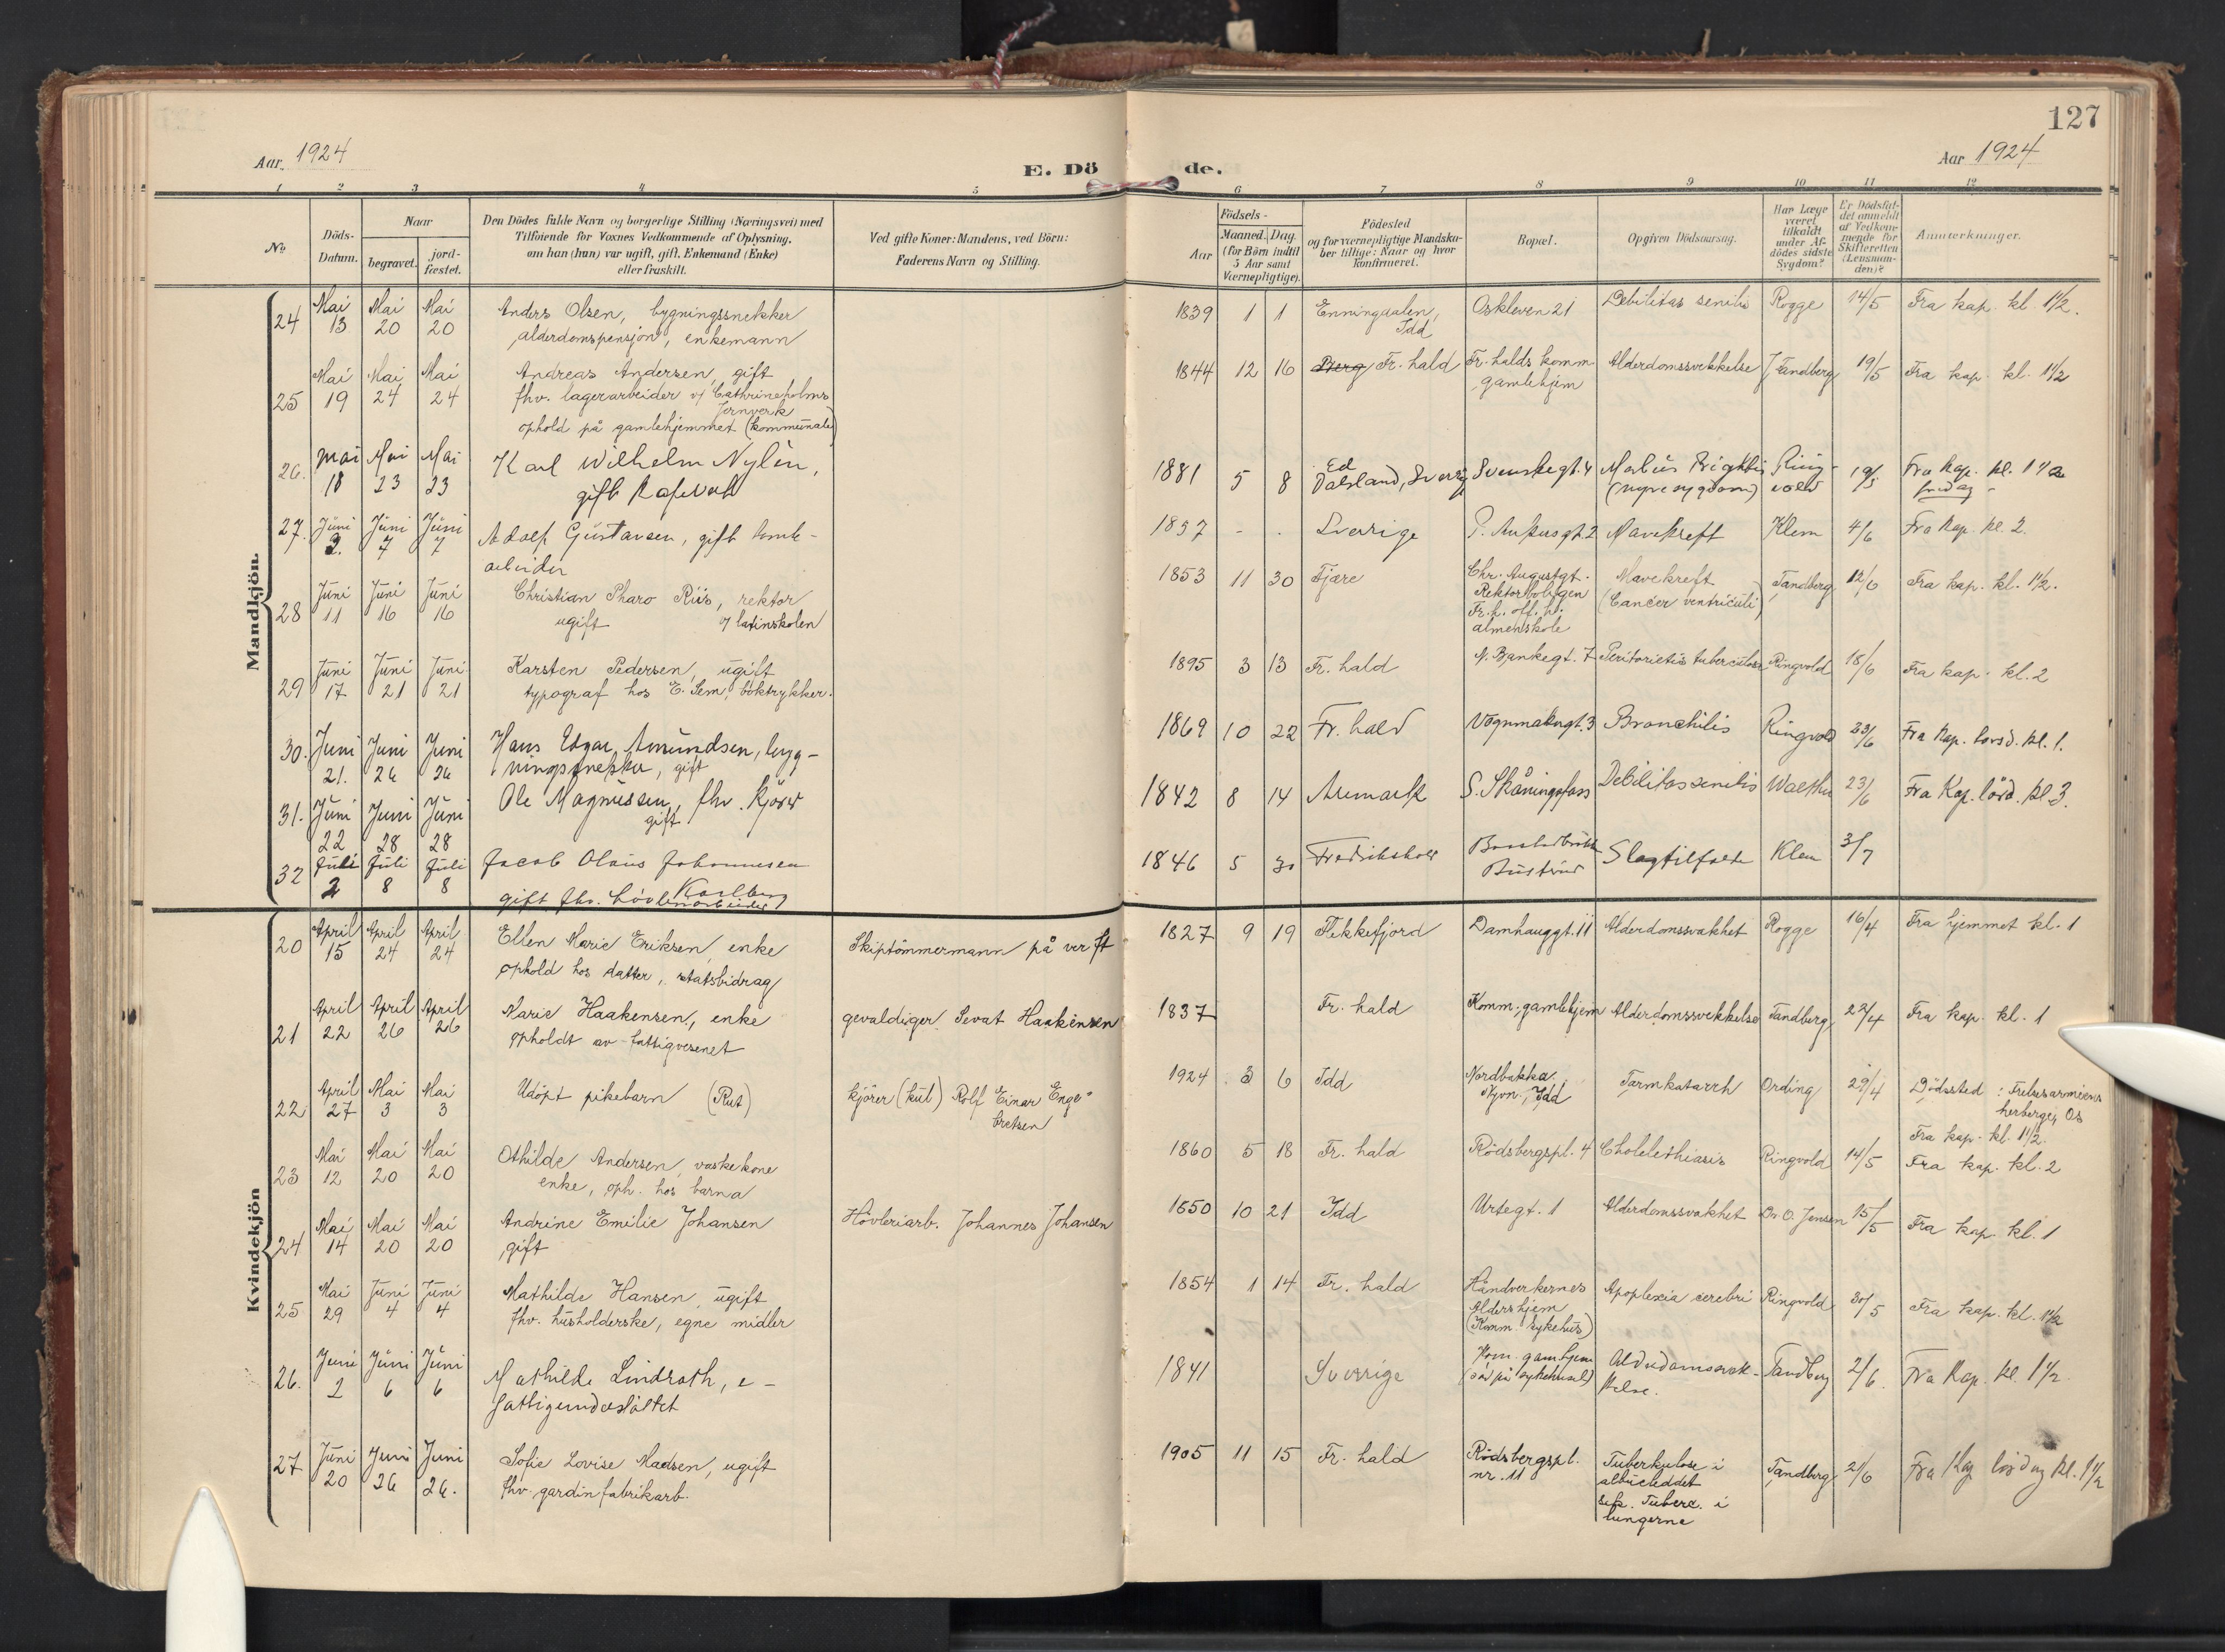 127
Aar. 1924
E. Dö
de.
Aar 1924
1 2 3 4 5 6 7 8 9 10 11 12
No
Döds-
Datum.
Naar
begravet.
jord-
fæstet.
Den Dödes fulde Navn og borgerlige Stilling (Næringsvei) med
Tilföiende for Voxnes Vedkommende af Oplysning,
om han (hun) var ugift, gift, Enkemand (Enke)
eller fraskilt.
Ved gifte Koner: Mandens, ved Börn:
Faderens Navn og Stilling.
Födsels-
Aar
Maaned. Dag.
(for Börn indtil
5 Aar samt
Værnepligtige).
Födested
og for værnepligtige Mandska-
ber tillige: Naar og hvor
konfirmeret.
Bopæl.
Opgiven Dödsaarsag.
Har Læge
været
tilkaldt
under Af-
dödes sidste
Sygdom?
Er Dödsfal-
det anmeldt
af Vedkom-
mende for
Skifteretten
(Lensman-
den)?
Anmerkninger.
Mandkjön.
24 Mai 13 Mai 20 Mai 20
Anders Olsen, bygningssnekker
alderdomspensjon, enkemann
1839 1 1 Enningdalen,
Idd
Oskleven 21
Debilitas senilis
Rogge 14/5 Fra kap. kl 1 1/2.
25 Mai 19 Mai 24 Mai 24
Andreas Andersen, gift
fhv. lagerarbeider v/ Cathrineholms
Jernverk
ophold på gamlehjemmet (kommunale)
1844 12 16 Berg Fr. hald
Fr. halds komm.
gamlehjem
Alderdomssvekkelse
Tandberg 19/5 Fra kap. kl. 1 1/2
26. Mai 18 Mai 23 Mai 23
Karl Wilhelm Nylén,
gift
1881 5 8 Ed
Dalsland, Sverige
Svenskegt. 4
Morbus Brightii
(nyresygdom)
Ring-
vold
19/5 Fra Kap. kl. 1 1/2
fredag
27. Juni 2. Juni 7 Juni 7
Adolf Gustavsen, gift tomte-
arbeider
1857 - - Sverige
P. Ankersgt. 2
Mavekreft
Klem 4/6 Fra Kap. kl. 2.
28 Juni 11 Juni 16 Juni 16
Christian Pharo Riis, rektor
ugift v/ latinskolen
1853 11 30 Fjære
Chr. Augustgt.
Rektorboligen
Fr. h. off. h.
almenskole
Mavekreft
(Cancer ventriculi)
Tandberg 12/6 Fra kap. kl. 1 1/2.
29 Juni 17 Juni 21 Juni 21
Karsten Pedersen, ugift
typograf hos E. Sem, boktrykker.
1895 3 13 Fr. hald
N. Bankegt. 7
Peritonietis tuberculosa
Ringvold 18/6 Fra kap. kl. 2
30. Juni 21. Juni 26 Juni 26
Hans Edgar Amundsen, byg-
ningssnekker, gift
1869 10 22 Fr. hald
Vognmakergt. 3
Bronchitis
Ringvold 23/6 Fra Kap. torsd. kl. 1.
31. Juni 22 Juni 28 Juni 28
Ole Magnussen, fhv. kjører
gift
1842 8 14 Aremark
S. Skåningsfoss
Debilitas senilis
Walther 23/6 Fra Kap. lörd. kl 3.
32 Juli 2 Juli 8 Juli 8
Jacob Olaus Johannesen
Karlberg
gift fhv. høvleriarbeider
1846 5 30 Fredrikshald
Slagtilfælde
Klem 3/7
Kvindekjön
20 April 15 April 24 April 24
Ellen Marie Eriksen, enke
ophold hos datter, statsbidrag
Skiptömmermann på verft
1827 9 19 Flekkefjord
Damhauggt. 11
Alderdomssvakhet
Rogge 16/4 Fra hjemmet kl. 1
21 April 22 April 26 April 26
Marie Haakensen, enke
opholdt av fattigvesenet
gevaldiger Sevat Haakensen
1837 Fr. hald
Komm. gamlehjem
Alderdomssvekkelse
Tandberg 22/4 Fra kap. kl. 1
22 April 27 Mai 3 Mai 3
Udöpt pikebarn (Rut)
kjörer (kul) Rolf Einar Enge-
bretsen
1924 3 6 Idd
Nordbakka
Idd
Tarmkatarrh
Ording 29/4 Dödssted: Frelsesarmeens
herberge, Os
Fra kap. kl. 1 1/2.
23 Mai 12 Mai 20 Mai 20
Othilde Andersen, vaskekone
enke, oph. hos barna
1860 5 18 Fr. hald
Rödsbergspl. 4
Cholelethiasis
Ringvold 14/5 Fra kap. kl. 2
24 Mai 14 Mai 20 Mai 20
Andrine Emilie Johansen
gift
Hövleriarb. Johannes Johansen
1850 10 21 Idd
Urtegt. 1
Alderdomssvakhet
Dr O. Jensen 15/5 Fra kap. kl. 1
25 Mai 29 Juni 4 Juni 4
Mathilde Hansen, ugift
fhv. husholderske, egne midler
1854 1 14 Fr. hald
Håndverkernes
Aldershjem
(Komm. sykehus)
Apoplexia cerebri
Ringvold 30/5 Fra kap. kl. 1 1/2
26. Juni 2 Juni 6 Juni 6
Mathilde Lindroth, e-
fattigunderstöttet
1841 Sverige
Kom. gamlehjem
(död på sykehuset)
Alderdomssvek-
kelse.
Tandberg 2/6. Fra Kap. kl. 1 1/2.
27 Juni 20 Juni 26 Juni 26.
Sofie Lovise Madsen, ugift
fhv. gardinfabrikarb.
1905 11 15 Fr. hald
Rödsbergspl.
nr. 11
Tuberkulose i
albueleddet
sek. Tuberc. i
lungerne
Tandberg 2/6 Fra Kap lördag kl. 1 1/2